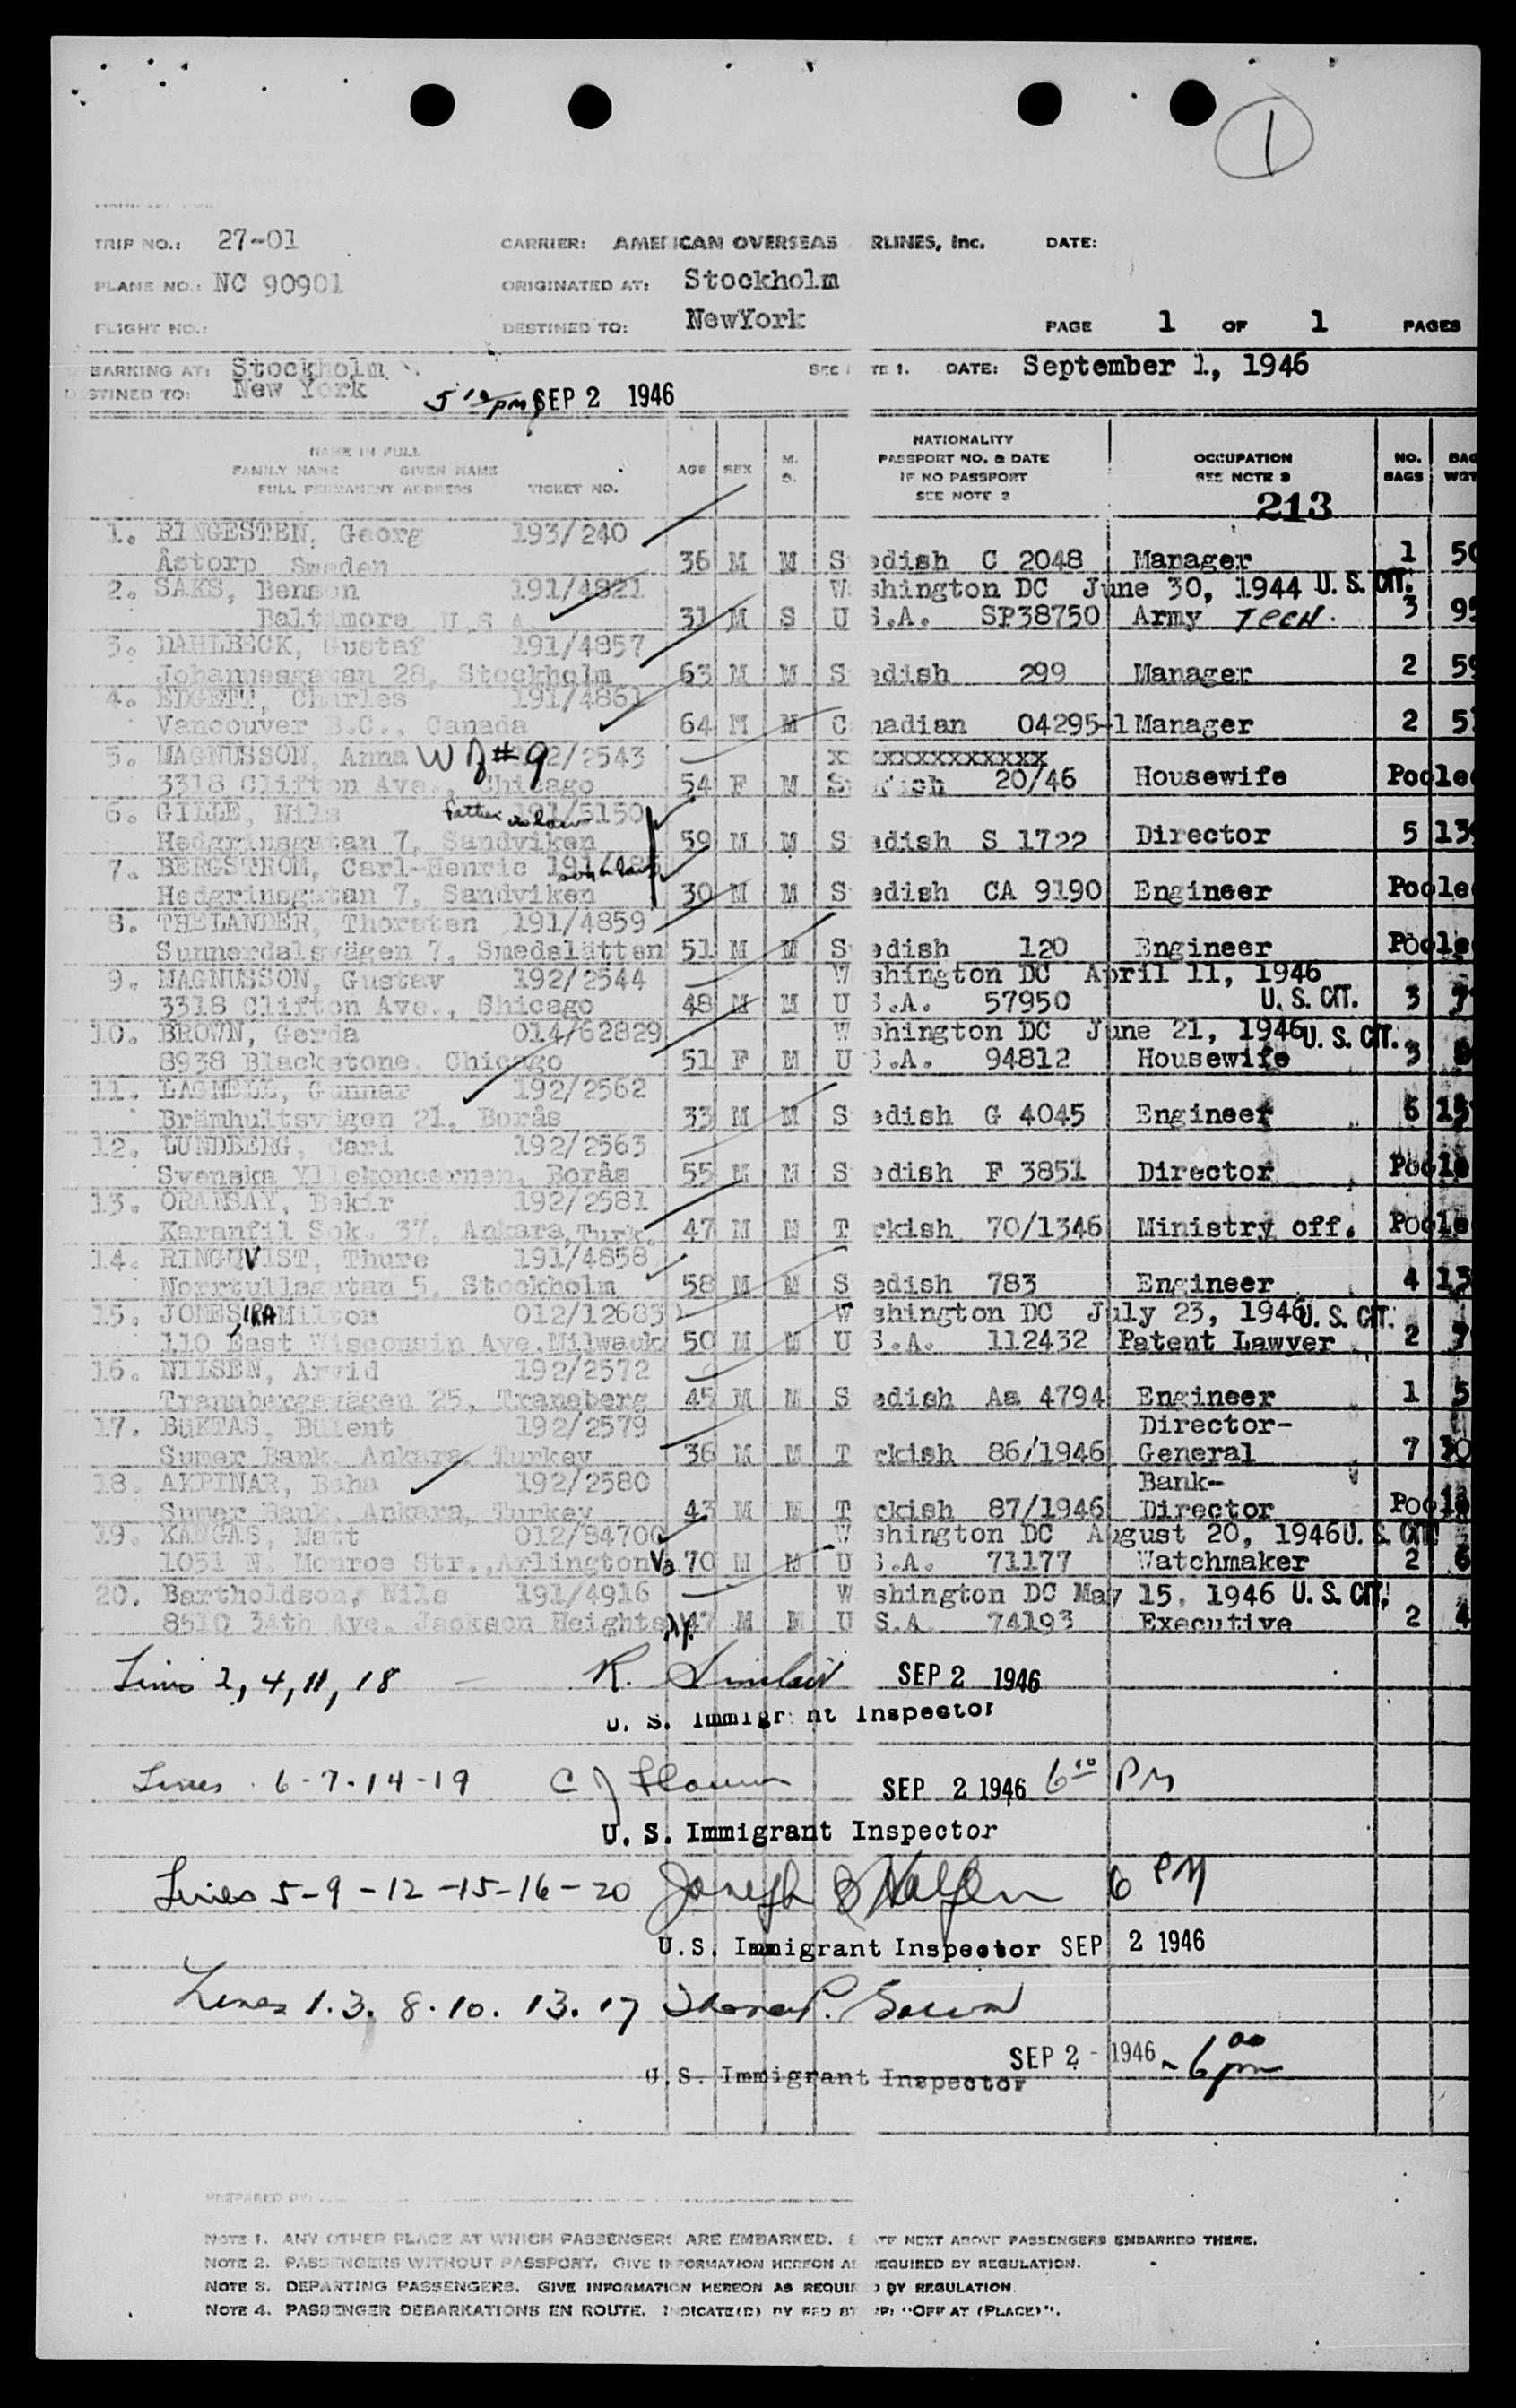 1
TRIP NO.: 27-01 CARRIER: AMERICAN OVERSEAS RLINES, Inc. DATE:
PLANE NO.: NC 90901 ORIGINATED AT: Stockholm
FLIGHT NO.: DESTINED TO: NewYork PAGE 1 OF 1 PAGES
BARKING AT: Stockholm SEE TE 1. DATE: September 1, 1946
STINED TO: New York 5 10 pm SEP 2 1946
NAME IN FULL
FAMILY NAME GIVEN NAME
FULL PERMANENT ADDRESS TICKET NO. AGE SEX M. S. NATIONALITY PASSPORT NO. & DATE IF NO PASSPORT SEE NOTE 2 OCCUPATION SEE NOTE 3 NO. BAGS BAG WGT
213
1. RINGESTEN, Georg 193/240
Åstorp Sweden 36 M M S edish C 2048 Manager 1 50
2. SAKS, Benson 191/4821 W shington DC June 30, 1944 U.S. CIT.
Baltimore U.S.A. 31 M S U S.A. SP38750 Army TECH. 3 95
3. DAHLBECK, Gustaf 191/4857
Johannesgatan 28, Stockholm 63 M M S edish 299 Manager 2 59
4. EDGETT, Charles 191/4861
Vancouver B.C., Canada 64 M M C nadian 04295-1 Manager 2 5
5. MAGNUSSON, Anna W of #9 2/2543 x xxxxxxxxxxxx
3318 Clifton Ave., Chicago 54 F M S ish 20/46 Housewife Poole
6. GILLE, Nils father in law 191/5150
Hedgrinsgatan 7, Sandviken 59 M M S edish S 1722 Director 5 13
7. BERGSTROM, Carl-Henric son in law
Hedgrinsgatan 7, Sandviken 30 M M S edish CA 9190 Engineer Poole
8. THELANDER, Thorsten 191/4859
Sunnerdalsvägen 7, Smedslätten 51 M M S edish 120 Engineer Poole
9. MAGNUSSON, Gustav 192/2544 W shington DC April 11, 1946
3318 Clifton Ave., Chicago 48 M M U S.A. 57950 U.S. CIT. 3 7
10. BROWN, Gerda 014/62829 W shington DC June 21, 1946 U.S. CIT.
8938 Blackstone, Chicago 51 F M U S.A. 94812 Housewife 3
11. LAGNELL, Gunnar 192/2562
Brämhultsvägen 21, Borås 33 M M S edish G 4045 Engineer 6 15
12. LUNDBERG, Carl 192/2563
Svenska Yllekoncernen, Borås 55 M M S edish F 3851 Director Poole
13. ORANSAY, Bekir 192/2581
Karanfil Sok. 37, Ankara, Turk. 47 M M T rkish 70/1346 Ministry off. Poole
14. RINGQVIST, Thure 191/4858
Norrtullsgatan 5, Stockholm 58 M M S edish 783 Engineer 4 13
15. JONES, IRA Milton 012/12683 W shington DC July 23, 1946 U.S. CIT.
110 East Wisconsin Ave. Milwauk 50 M M U S.A. 112432 Patent Lawyer 2 7
16. NILSEN, Arvid 192/2572
Tranebergsvägen 25, Traneberg 45 M M S edish Aa 4794 Engineer 1 5
17. BüKTAS, Bülent 192/2579 Director-
Sumer Bank, Ankara, Turkey 36 M M T rkish 86/1946 General 7 30
18. AKPINAR, Baha 192/2580 Bank-
Sumer Bank, Ankara, Turkey 43 M M T rkish 87/1946 Director Poole
19. KANGAS, Matt 012/84700 W shington DC August 20, 1946 U.S. CIT.
1051 N. Monroe Str., Arlington Va 70 M M U S.A. 71177 Watchmaker 2 6
20. Bartholdson, Nils 191/4916 W shington DC May 15, 1946 U.S. CIT.
8510 34th Ave. Jackson Heights NY. 47 M M U S.A. 74193 Executive 2 4
Lines 2, 4, 11, 18 R. Sinclair SEP 2 1946
U. S. Immigr nt Inspector
Lines 6-7-14-19 C J SEP 2 1946 6 10 PM
U. S. Immigrant Inspector
Lines 5-9-12-15-16-20 Joseph 6 PM
U.S. Immigrant Inspector SEP 2 1946
Lines 1. 3. 8. 10. 13. 17
SEP 2 - 1946 - 6 00 pm
U.S. Immigrant Inspector
PREPARED BY:
NOTE 1. ANY OTHER PLACE AT WHICH PASSENGERS ARE EMBARKED. S ATE NEXT ABOVE PASSENGERS EMBARKED THERE.
NOTE 2. PASSENGERS WITHOUT PASSPORT. GIVE INFORMATION HEREON AS REQUIRED BY REGULATION.
NOTE 3. DEPARTING PASSENGERS. GIVE INFORMATION HEREON AS REQUIRED BY REGULATION.
NOTE 4. PASSENGER DEBARKATIONS EN ROUTE. INDICATE(D) BY RED ST P: "OFF AT (PLACE)".